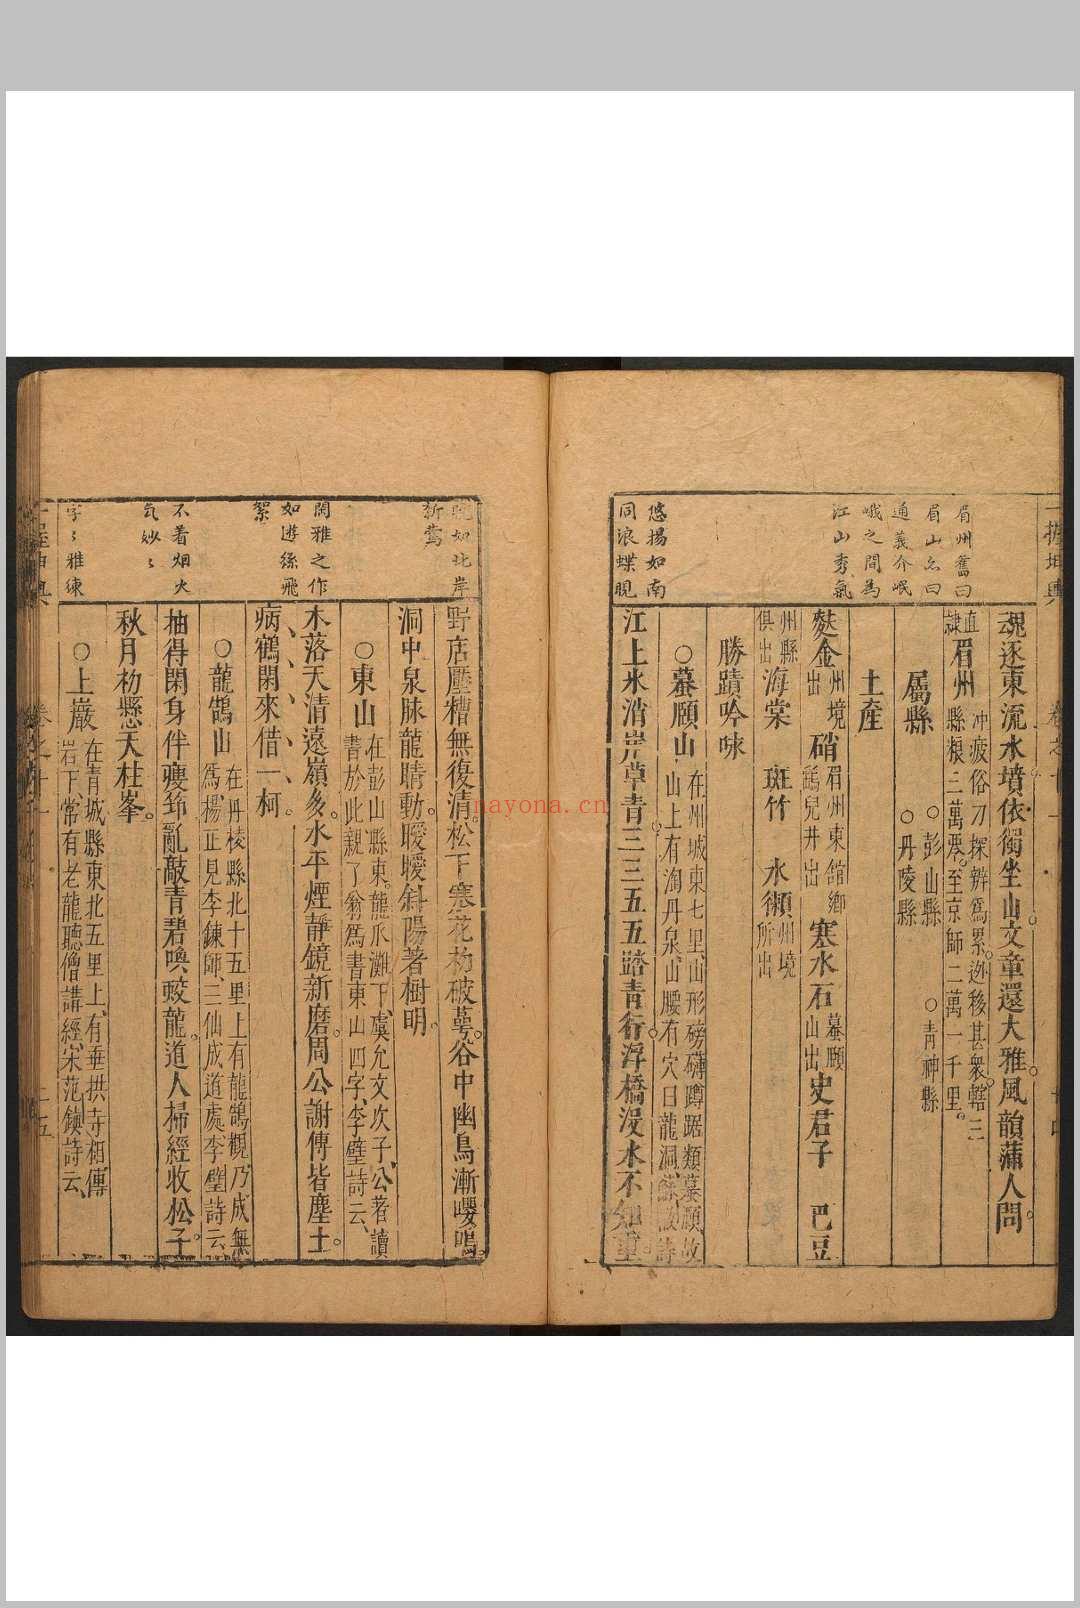 一握坤輿
眉州舊曰
眉山名曰
通義介岷
峨之間為
江山秀氣
悠揚如南
同浪蝶睍
魂逐東流水墳依獨坐山文章還大雅風韻蒲人問
直隷眉州
冲疲俗刁探辨爲累逊移甚衆轄三
縣粮二萬零至京師二萬一千里
屬縣
○彭山縣
○青神縣
○丹陵縣
土產
麩金州境出
硝眉州東館鄉鷂兒井出
寒水石蟇頤山出
史君子
巴豆
州縣俱出
海棠
斑竹
水獺州境所出
勝蹟吟咏
○蟇頤山
在州城東七里山形磅礡蹲踞類蟇頤故
山上有淘丹泉山腰有穴曰龍洞蘇軾詩
江上水消岸草青三三五五踏青行浮橋没水不知重
睆如北岸
新鶯
閑雅之作
如遊絲飛
絮
不着烟火
气妙〻
字〻雅練
野店壓糟無復清松下寒花初破萼谷中幽鳥漸嚶鳴
洞中泉脉龍睛動曖曖斜陽著樹明
○東山
在彭山縣東龍爪灘下虞允文次子公著讀
書於此親了翁爲書東山四字李璧詩云
木落天清遠嶺多水平煙靜鏡新磨周公謝傅皆塵土
病鶴閑來借一柯
○龍鵠山
在丹棱縣北十五里上有龍鵠觀乃成無
爲楊正見李鍊師三仙成道處李璧詩云
抽得閑身伴瘦筇亂敲青碧喚蛟龍道人掃經收松子
秋月初懸天柱峯
○上巖
在青城縣東北五里上有垂拱寺相傳
岩下常有老龍聽僧講經宋范鎮詩云